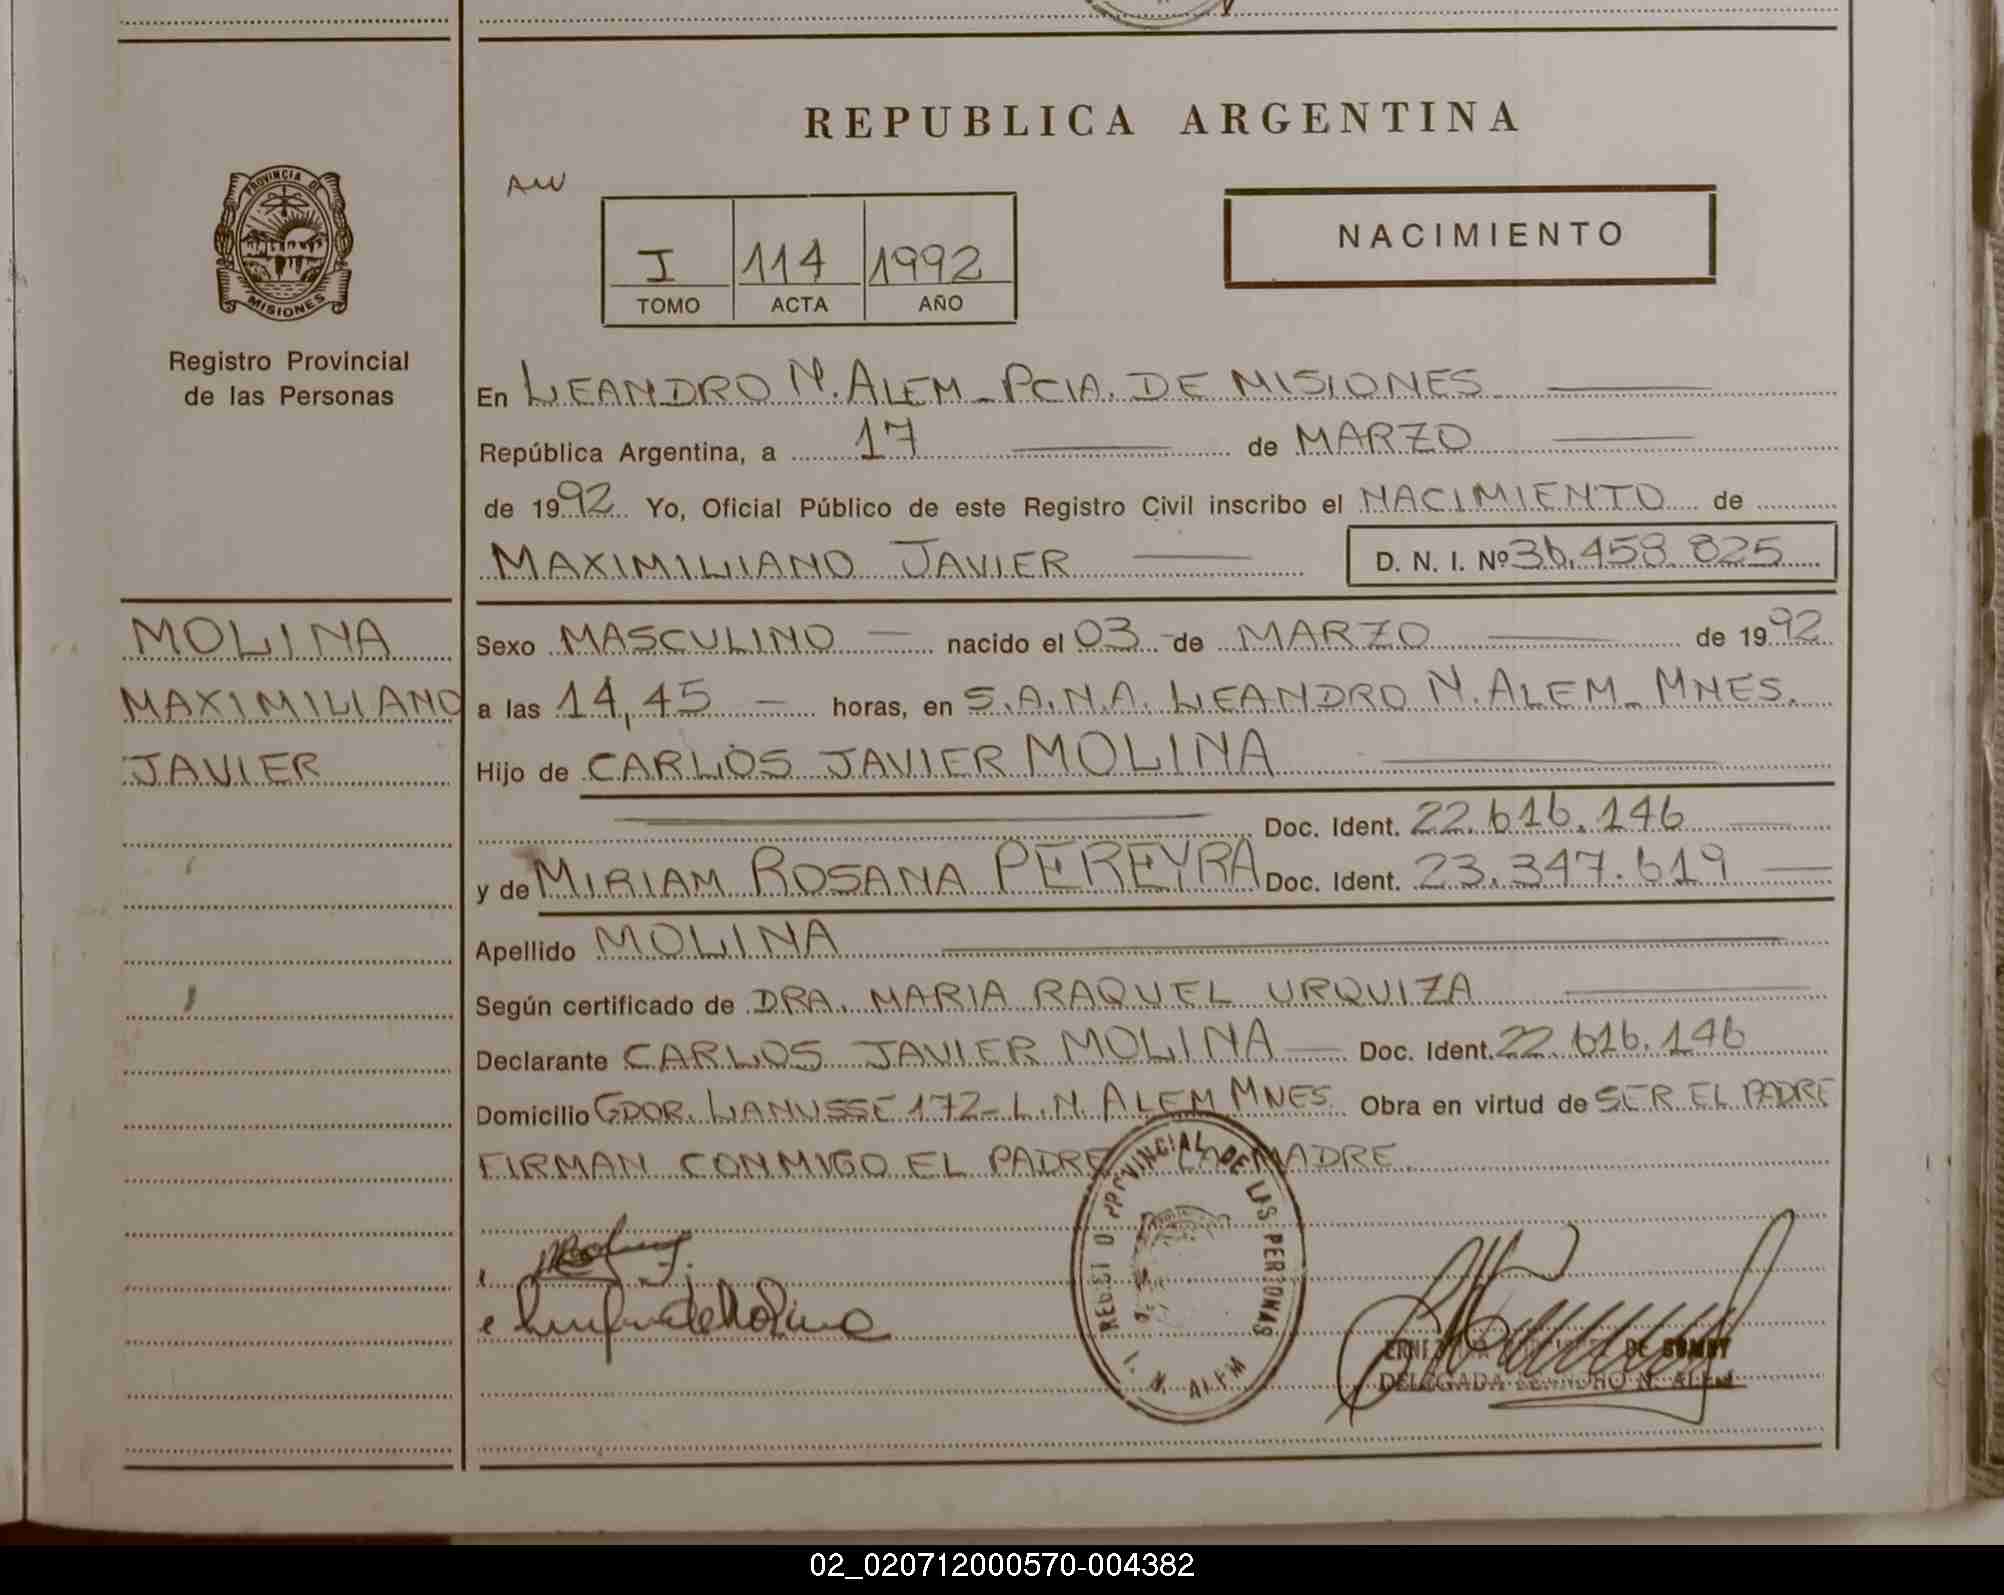 REPUBLICA ARGENTINA
AW
PROVINCIA DE
MISIONES
Registro Provincial
de las Personas
I 114 1992
TOMO ACTA AÑO
NACIMIENTO
En LEANDRO N. ALEM - PCIA. DE MISIONES
República Argentina, a 17 de MARZO
de 1992 Yo, Oficial Público de este Registro Civil inscribo el NACIMIENTO de
MAXIMILIANO JAVIER D. N. I. Nº 36.458.825
MOLINA
MAXIMILIANO
JAVIER
Sexo MASCULINO nacido el 03 de MARZO de 1992
a las 14,45 horas, en S.A.N.A. LEANDRO N. ALEM - MNES.
Hijo de CARLOS JAVIER MOLINA
Doc. Ident. 22.616.146
y de MIRIAM ROSANA PEREYRA Doc. Ident. 23.347.619
Apellido MOLINA
Según certificado de DRA. MARIA RAQUEL URQUIZA
Declarante CARLOS JAVIER MOLINA Doc. Ident. 22.616.146
Domicilio GDOR. LANUSSE 172 - L.N. ALEM MNES. Obra en virtud de SER EL PADRE
FIRMAN CONMIGO EL PADRE LA MADRE
REGISTRO PROVINCIAL DE LAS PERSONAS
L. N. ALEM
DE
DELEGADA LEANDRO N. ALEM
02_020712000570-004382